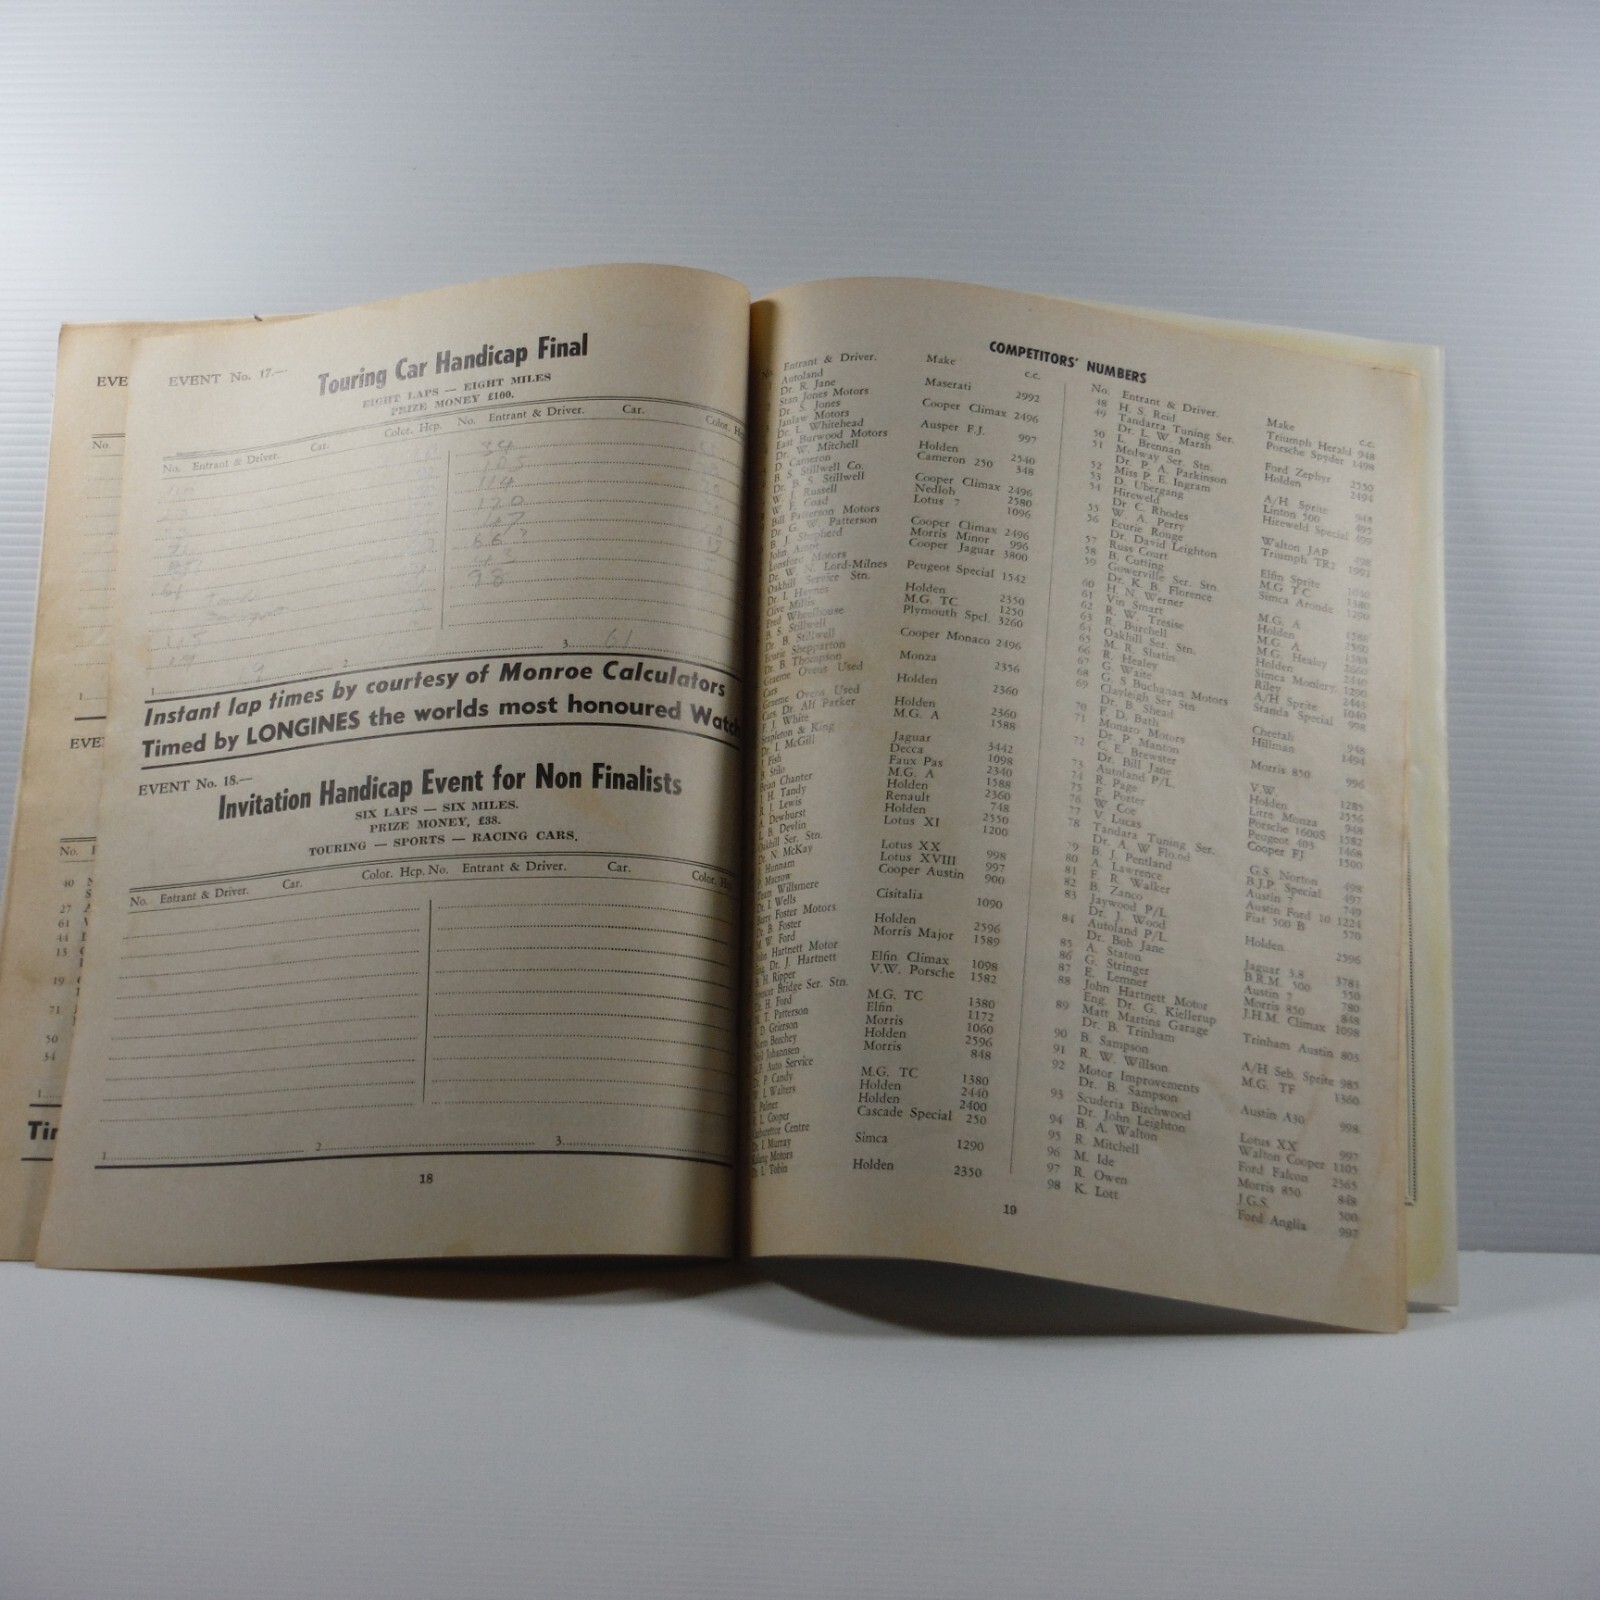 EVE
No.
EVE
No.
40
27
61
44
15
19
71
50
34
Tir
EVENT No. 17.—
Touring Car Handicap Final
EIGHT LAPS — EIGHT MILES
PRIZE MONEY £100.
No. Entrant & Driver. Car. Color. Hcp. No. Entrant & Driver. Car. Color. H
34
114
120
98
1 9 2 3 61
Instant lap times by courtesy of Monroe Calculators
Timed by LONGINES the worlds most honoured Watch
EVENT No. 18.—
Invitation Handicap Event for Non Finalists
SIX LAPS — SIX MILES.
PRIZE MONEY, £38.
TOURING — SPORTS — RACING CARS.
No. Entrant & Driver. Car. Color. Hcp. No. Entrant & Driver. Car. Color. H
1 2 3
18
COMPETITORS' NUMBERS
Entrant & Driver. Make c.c.
Autoland
Dr. R. Jane Maserati 2992
Stan Jones Motors
Dr. S. Jones Cooper Climax 2496
Janlaw Motors
Dr. L. Whitehead Ausper F.J. 997
East Burwood Motors
Dr. W. Mitchell Holden 2540
D. Cameron Cameron 250 348
B. S. Stillwell Co.
Dr. B. S. Stillwell Cooper Climax 2496
W. J. Russell Nedloh 2580
W. E. Coad Lotus 7 1096
Bill Patterson Motors
Dr G. W. Patterson Cooper Climax 2496
B. J. Shepherd Morris Minor 996
John Ampt Cooper Jaguar 3800
Lonsford Motors
Dr. W. N. Lord-Milnes Peugeot Special 1542
Oakhill Service Stn.
Dr. I. Haynes Holden 2350
Clive Millis M.G. TC 1250
Fred Wheelhouse Plymouth Spcl. 3260
B. S. Stillwell
Dr. B. Stillwell Cooper Monaco 2496
Ecurie Shepparton
Dr. B. Thompson Monza 2356
Graeme Ovens Used
Cars Holden 2360
Graeme Ovens Used
Cars. Dr. Alf Parker Holden 2360
F. J. White M.G. A 1588
Stapleton & King
Dr. I. McGill Jaguar 3442
J. Fish Decca 1098
B. Stilo Faux Pas 2340
Brian Chanter M.G. A 1588
J. H. Tandy Holden 2360
R. J. Lewis Renault 748
A. Dewhurst Holden 2550
L. B. Devlin Lotus XI 1200
Oakhill Ser. Stn.
Dr. N. McKay Lotus XX 998
J. Hunnam Lotus XVIII 997
P. Macrow Cooper Austin 900
Team Willsmere
Dr. I. Wells Cisitalia 1090
Barry Foster Motors
Dr. B. Foster Holden 2596
M. W. Ford Morris Major 1589
John Hartnett Motor
Eng. Dr. J. Hartnett Elfin Climax 1098
B. H. Ripper V.W. Porsche 1582
Spencer Bridge Ser. Stn.
Dr. H. Ford M.G. TC 1380
M. T. Patterson Elfin 1172
D. Grierson Morris 1060
Norm Beechey Holden 2596
Neil Johannsen Morris 848
M.F. Auto Service
Dr. P. Candy M.G. TC 1380
W. J. Walters Holden 2440
Palmer Holden 2400
R. L. Cooper Cascade Special 250
Carburettor Centre
Dr. I. Murray Simca 1290
Motors
Dr. L. Tobin Holden 2350
No. Entrant & Driver. Make c.c.
48 H. S. Reid Triumph Herald 948
49 Tandarra Tuning Ser.
Dr. L. W. Marsh Porsche Spyder 1498
50 L. Brennan Ford Zephyr 2550
51 Medway Ser. Stn.
Dr. P. A. Parkinson Holden 2494
52 Miss P. E. Ingram A/H Sprite 948
53 D. Ubergang Linton 500 495
54 Hireweld
Dr. C. Rhodes Hireweld Special 499
55 W. A. Perry Walton JAP 498
56 Ecurie Rouge
Dr. David Leighton Triumph TR2 1992
57 Russ Court Elfin Sprite
58 B. Cutting M.G T.C 1380
59 Gowerville Ser. Stn.
Dr. K. B. Florence Simca Aronde 1290
60 H. N. Werner M.G. A 1588
61 Vin Smart Holden
62 R. W. Tresise M.G. A 1588
63 R. Burchell M.G. Healey 2660
64 Oakhill Ser. Stn. Holden 2440
65 M. R. Shatin Simca Monlery. 1290
66 R. Healey Riley 2445
67 G. Waite A/H Sprite 1040
68 G. S Buchanan Motors Standa Special 998
69 Clayleigh Ser Stn
Dr. B. Shead Cheetah 948
70 F. D. Bath Hillman 1494
71 Monaro Motors
Dr. P. Manton Morris 850 996
72 C. E. Brewster
Dr. Bill Jane V.W. 1285
73 Autoland P/L Holden 2556
74 R. Page Litre Monza 948
75 F. Porter Porsche 1600S 1582
76 W. Coe Peugeot 403 1468
77 V. Lucas Cooper FJ 1500
78 Tandara Tuning Ser.
Dr. A. W Floyd G.S. Norton 498
79 B. J. Pentland B.J.P. Special 497
80 A. Lawrence Austin 7 749
81 F. R. Walker Austin Ford 10 1224
82 B. Zanco Fiat 500 B 570
83 Jaywood P/L
Dr. J. Wood Holden 2596
84 Autoland P/L
Dr. Bob Jane Jaguar 3.8 3781
85 A. Staton B.R.M. 500 550
86 G. Stringer Austin 7 780
87 E. Lemner Morris 850 848
88 John Hartnett Motor
Eng. Dr. G. Kiellerup J.H.M. Climax 1098
89 Matt Martins Garage
Dr. B. Trinham Trinham Austin 803
90 B. Sampson A/H Seb. Sprite 985
91 R. W. Willson M.G. TF 1360
92 Motor Improvements
Dr. B. Sampson Austin A30 998
93 Scuderia Birchwood
Dr. John Leighton Lotus XX 997
94 B. A. Walton Walton Cooper 1105
95 R. Mitchell Ford Falcon 2365
96 M. Ide Morris 850 848
97 R. Owen J.G.S. 500
98 K. Lott Ford Anglia 997
19